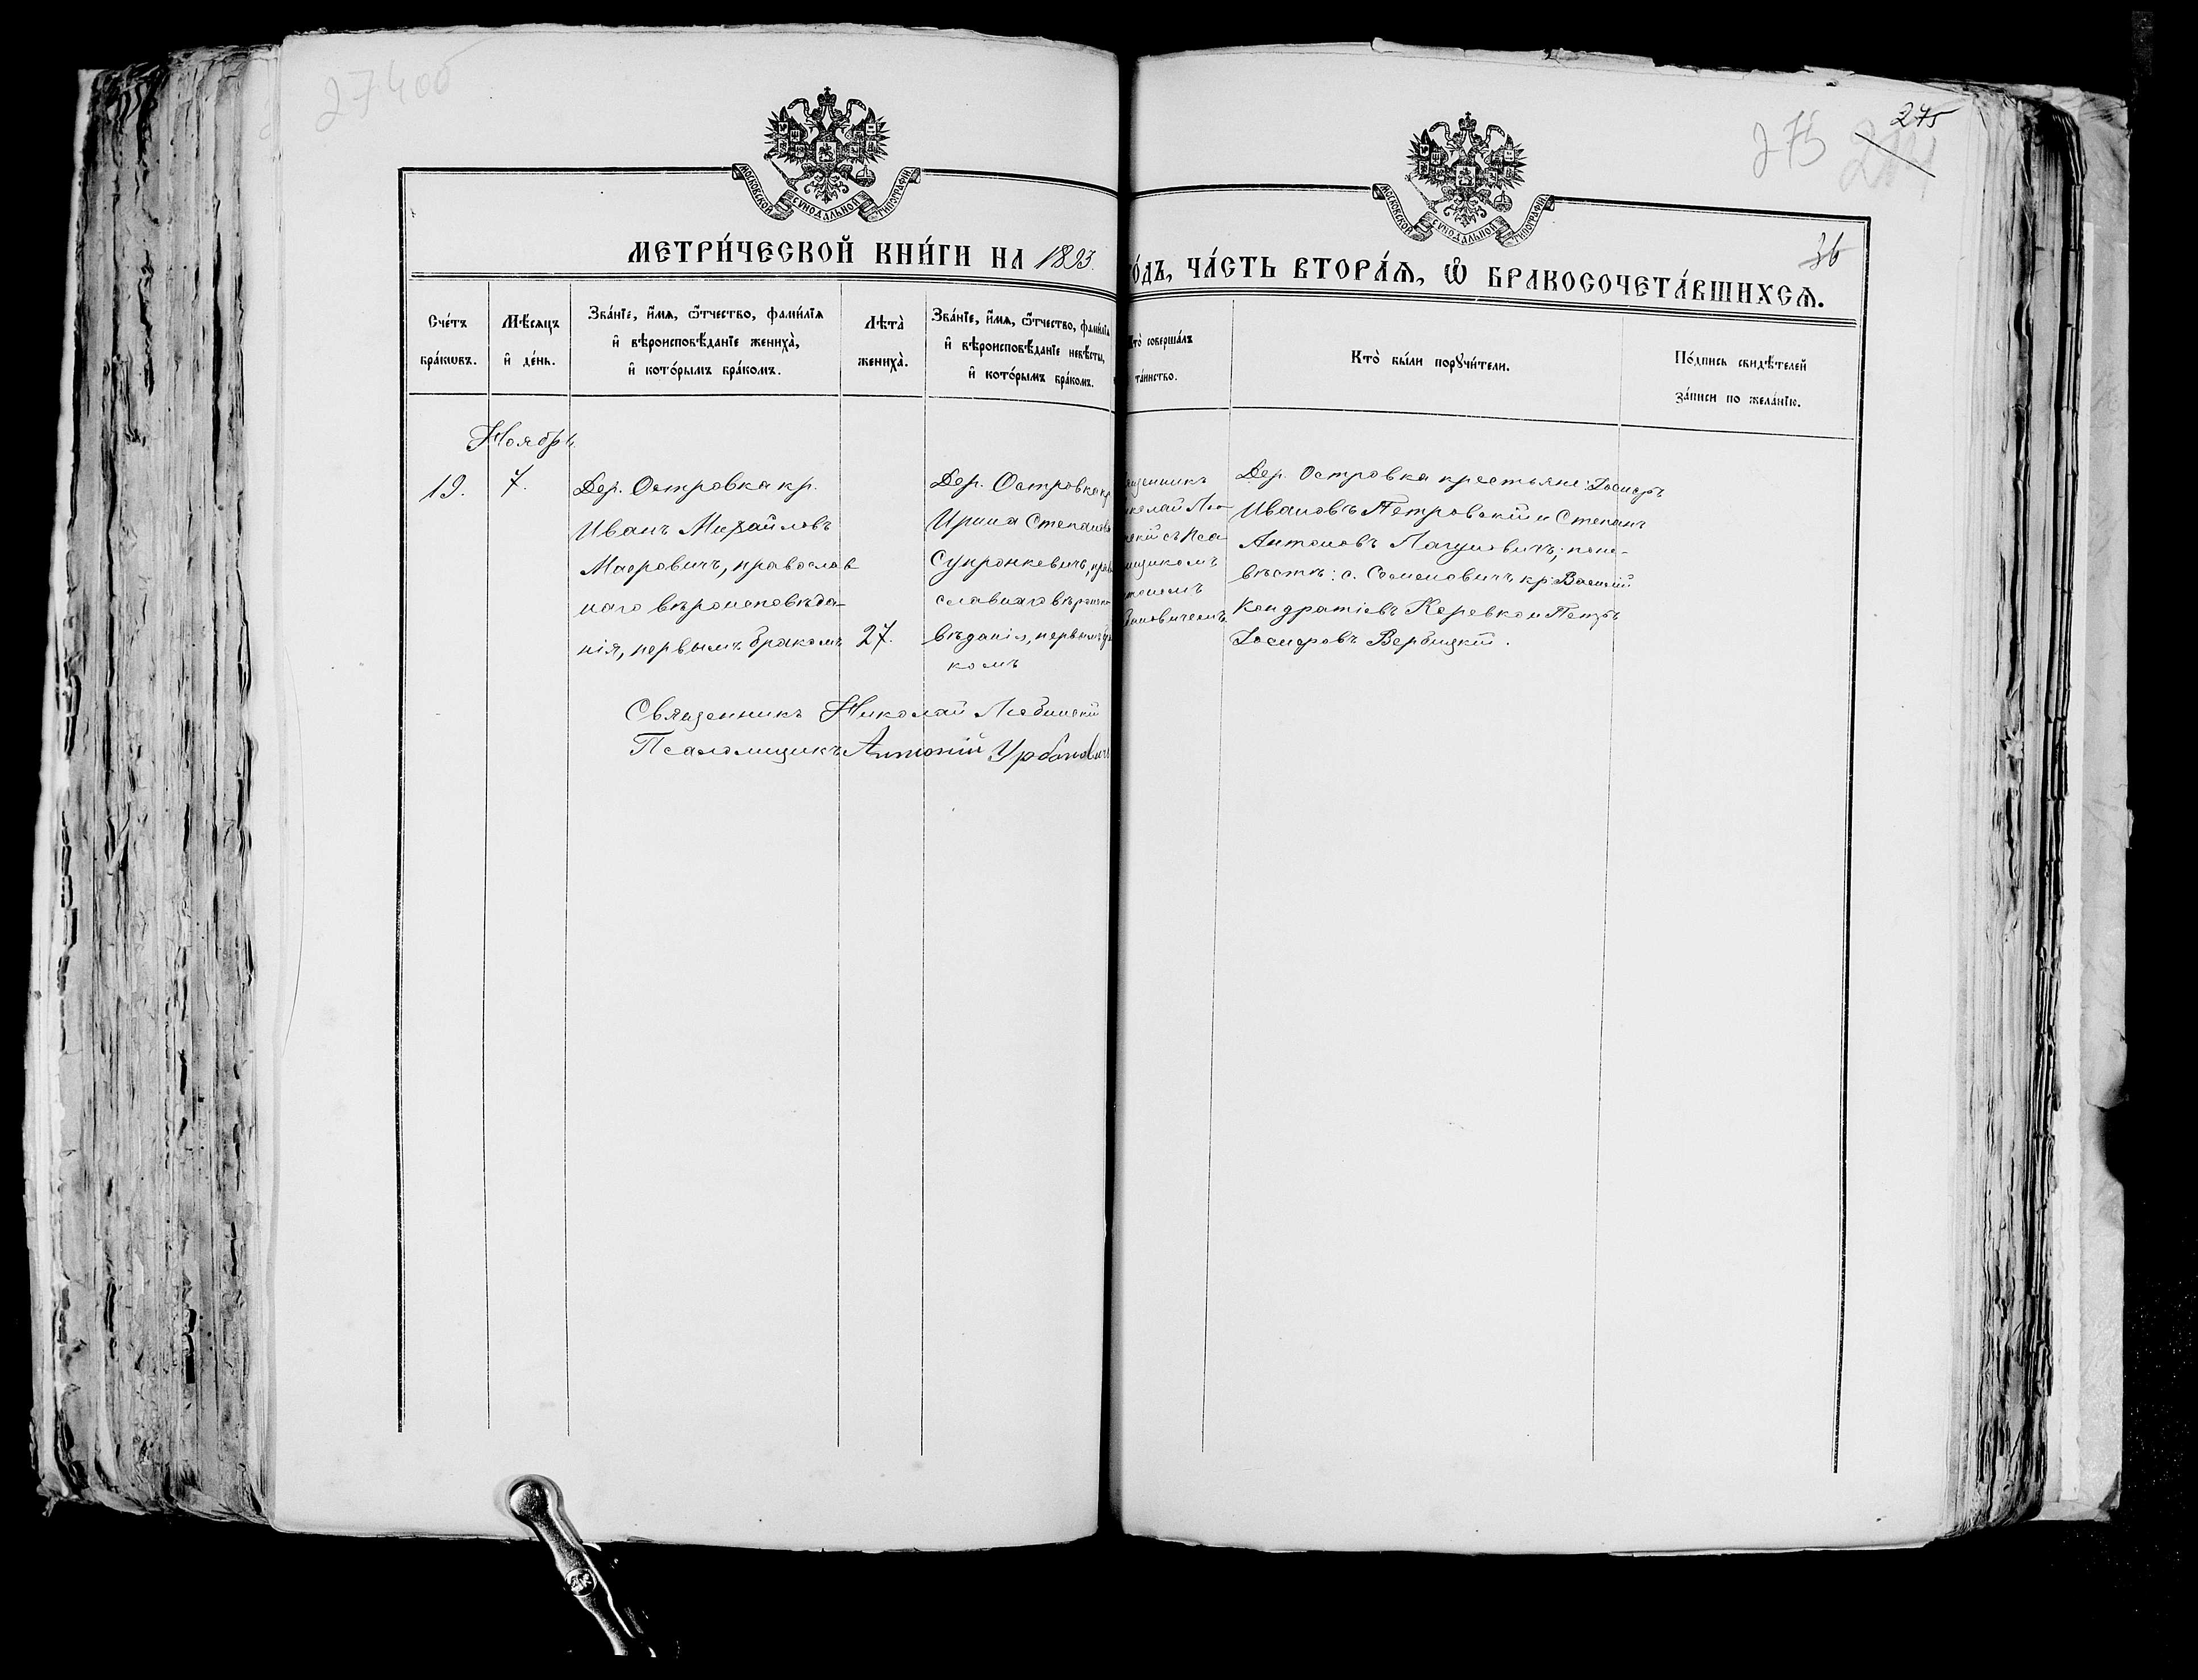 274об
275
275
МОСКОВСКОЙ СУНОДАЛЬНОЙ ТИПОГРАФІИ
МОСКОВСКОЙ СУНОДАЛЬНОЙ ТИПОГРАФІИ
36
МЕТРИ́ЧЕСКОЙ КНИ́ГИ НА 1893.
О́ДЪ, ЧА́СТЬ ВТОРА́Ѧ, Ѡ҆ БРАКОСОЧЕТА́ВШИХСѦ.
Сче́тъ бра́кѡвъ.
Мѣ́сѧцъ и҆ де́нь.
Зва́нїе, и҆́мѧ, ѻ҆́тчество, фами́лїѧ
и҆ вѣроисповѣ́данїе жениха̀,
и҆ кото́рымъ бра́комъ.
Лѣта̀ жениха̀.
Зва́нїе, и҆́мѧ, ѻ҆́тчество, фами́лїѧ
и҆ вѣроисповѣ́данїе невѣ́сты,
и҆ кото́рымъ бра́комъ.
то̀ соверша́лъ
та́инство.
Кто̀ бы́ли порꙋчи́тели.
По́дпись свидѣ́телей
за́писи по жела́нїю.
Ноябрь
19.
7.
Дер. Островка кр.
Иванъ Михайловъ
Маеровичъ, православ
наго вѣроисповѣда-
нія, первымъ бракомъ
27.
Дер. Островка кр
Ирина Степанова
Супронкевичъ, пра
славнаго вѣроиспо
вѣданія, первымъ бра
комъ
щенникъ
колай Лю
скій съ Пса
мщикомъ
тоніемъ
бановичемъ
Дер. Островка крестьяне: Іосифъ
Ивановъ Петровскій и Степанъ
Антоновъ ; поне-
вѣстѣ: с. Семеновичъ кр. Василій
Кондратіевъ Перевко и Петръ
Іосифовъ Вербицкій.
Священникъ Николай Любинскій
Псаломщикъ Антоній Урбановичъ